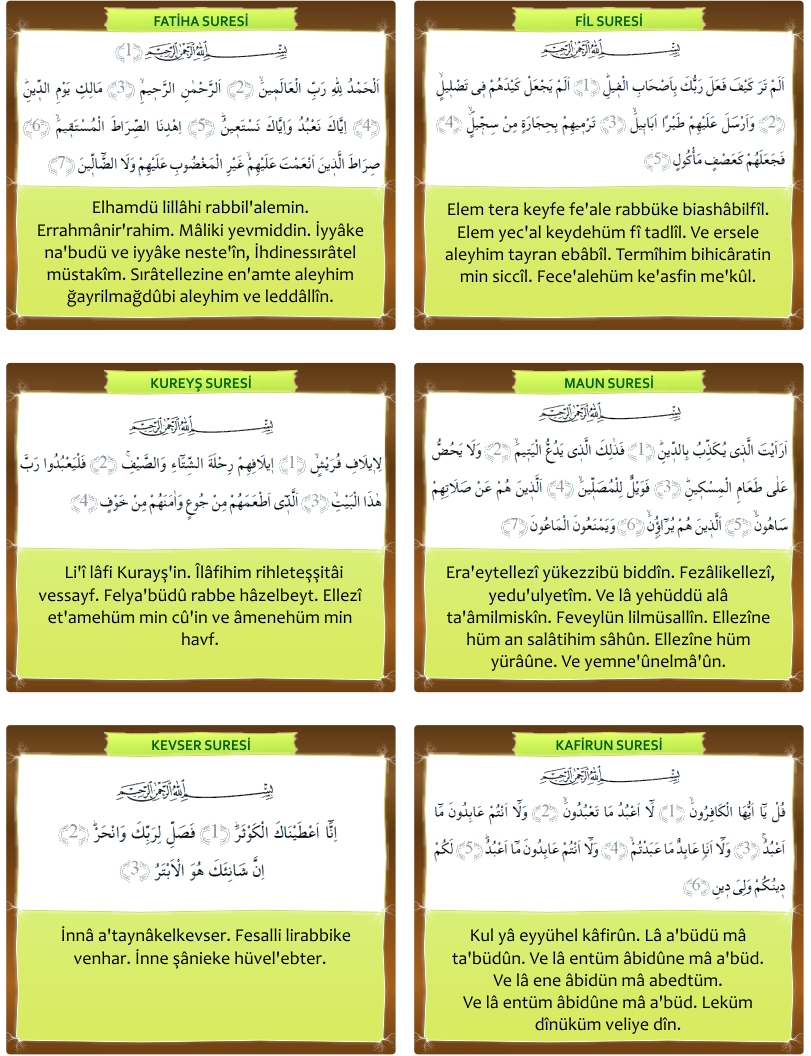 FATİHA SURESİ
بِسْمِ اللهِ الرَّحْمٰنِ الرَّحِيمِ ﴿1﴾
اَلْحَمْدُ لِلّٰهِ رَبِّ الْعَالَمِينَۙ ﴿2﴾ اَلرَّحْمٰنِ الرَّحِيمِۙ ﴿3﴾ مَالِكِ يَوْمِ الدِّينِۜ
﴿4﴾ اِيَّاكَ نَعْبُدُ وَاِيَّاكَ نَسْتَعِينُۜ ﴿5﴾ اِهْدِنَا الصِّرَاطَ الْمُسْتَقِيمَۙ ﴿6﴾
صِرَاطَ الَّذِينَ اَنْعَمْتَ عَلَيْهِمْۙ غَيْرِ الْمَغْضُوبِ عَلَيْهِمْ وَلَا الضَّٓالِّينَ ﴿7﴾
Elhamdü lillâhi rabbil'alemin.
Errahmânir'rahim. Mâliki yevmiddin. İyyâke
na'budü ve iyyâke neste'în, İhdinessırâtel
müstakîm. Sırâtellezine en'amte aleyhim
ğayrilmağdûbi aleyhim ve leddâllîn.
FİL SURESİ
بِسْمِ اللهِ الرَّحْمٰنِ الرَّحِيمِ
اَلَمْ تَرَ كَيْفَ فَعَلَ رَبُّكَ بِاَصْحَابِ الْفِيلِۜ ﴿1﴾ اَلَمْ يَجْعَلْ كَيْدَهُمْ فِى تَضْلِيلٍۙ
﴿2﴾ وَاَرْسَلَ عَلَيْهِمْ طَيْرًا اَبَابِيلَۙ ﴿3﴾ تَرْمِيهِمْ بِحِجَارَةٍ مِنْ سِجِّيلٍۙ ﴿4﴾
فَجَعَلَهُمْ كَعَصْفٍ مَأْكُولٍ ﴿5﴾
Elem tera keyfe fe'ale rabbüke biashâbilfîl.
Elem yec'al keydehüm fî tadlîl. Ve ersele
aleyhim tayran ebâbîl. Termîhim bihicâratin
min siccîl. Fece'alehüm ke'asfin me'kûl.
KUREYŞ SURESİ
بِسْمِ اللهِ الرَّحْمٰنِ الرَّحِيمِ
لِاِيلَافِ قُرَيْشٍۙ ﴿1﴾ اِيلَافِهِمْ رِحْلَةَ الشِّتَٓاءِ وَالصَّيْفِۚ ﴿2﴾ فَلْيَعْبُدُوا رَبَّ
هٰذَا الْبَيْتِۙ ﴿3﴾ اَلَّذِٓى اَطْعَمَهُمْ مِنْ جُوعٍ وَاٰمَنَهُمْ مِنْ خَوْفٍ ﴿4﴾
Li'î lâfi Kurayş'in. Îlâfihim rihleteşşitâi
vessayf. Felya'büdû rabbe hâzelbeyt. Ellezî
et'amehüm min cû'in ve âmenehüm min
havf.
MAUN SURESİ
بِسْمِ اللهِ الرَّحْمٰنِ الرَّحِيمِ
اَرَاَيْتَ الَّذِى يُكَذِّبُ بِالدِّينِۜ ﴿1﴾ فَذٰلِكَ الَّذِى يَدُعُّ الْيَتِيمَۙ ﴿2﴾ وَلَا يَحُضُّ
عَلٰى طَعَامِ الْمِسْكِينِۜ ﴿3﴾ فَوَيْلٌ لِلْمُصَلِّينَۙ ﴿4﴾ اَلَّذِينَ هُمْ عَنْ صَلَاتِهِمْ
سَاهُونَۙ ﴿5﴾ اَلَّذِينَ هُمْ يُرَٓاؤُ۫نَۙ ﴿6﴾ وَيَمْنَعُونَ الْمَاعُونَ ﴿7﴾
Era'eytellezî yükezzibü biddîn. Fezâlikellezî,
yedu'ulyetîm. Ve lâ yehüddü alâ
ta'âmilmiskîn. Feveylün lilmüsallîn. Ellezîne
hüm an salâtihim sâhûn. Ellezîne hüm
yürâûne. Ve yemne'ûnelmâ'ûn.
KEVSER SURESİ
بِسْمِ اللهِ الرَّحْمٰنِ الرَّحِيمِ
اِنَّٓا اَعْطَيْنَاكَ الْكَوْثَرَۜ ﴿1﴾ فَصَلِّ لِرَبِّكَ وَانْحَرْۜ ﴿2﴾
اِنَّ شَانِئَكَ هُوَ الْاَبْتَرُ ﴿3﴾
İnnâ a'taynâkelkevser. Fesalli lirabbike
venhar. İnne şânieke hüvel'ebter.
KAFİRUN SURESİ
بِسْمِ اللهِ الرَّحْمٰنِ الرَّحِيمِ
قُلْ يَٓا اَيُّهَا الْكَافِرُونَۙ ﴿1﴾ لَٓا اَعْبُدُ مَا تَعْبُدُونَۙ ﴿2﴾ وَلَٓا اَنْتُمْ عَابِدُونَ مَٓا
اَعْبُدُۚ ﴿3﴾ وَلَٓا اَنَا۬ عَابِدٌ مَا عَبَدْتُمْۙ ﴿4﴾ وَلَٓا اَنْتُمْ عَابِدُونَ مَٓا اَعْبُدُۜ ﴿5﴾ لَكُمْ
دِينُكُمْ وَلِىَ دِينِ ﴿6﴾
Kul yâ eyyühel kâfirûn. Lâ a'büdü mâ
ta'büdûn. Ve lâ entüm âbidûne mâ a'büd.
Ve lâ ene âbidün mâ abedtüm.
Ve lâ entüm âbidûne mâ a'büd. Leküm
dînüküm veliye dîn.